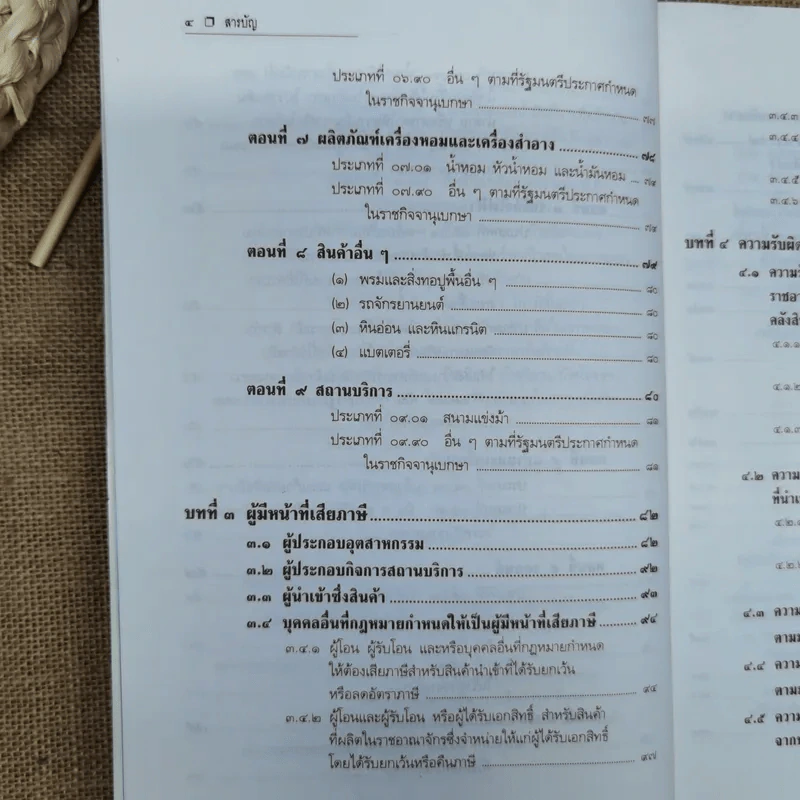 ๔ ❐ สารบัญ
ประเภทที่ ๐๖.๙๐ อื่น ๆ ตามที่รัฐมนตรีประกาศกำหนด
ในราชกิจจานุเบกษา ๗๗
ตอนที่ ๗ ผลิตภัณฑ์เครื่องหอมและเครื่องสำอาง ๗๘
ประเภทที่ ๐๗.๐๑ น้ำหอม หัวน้ำหอม และน้ำมันหอม ... ๗๙
ประเภทที่ ๐๗.๙๐ อื่น ๆ ตามที่รัฐมนตรีประกาศกำหนด
ในราชกิจจานุเบกษา ๗๙
ตอนที่ ๘ สินค้าอื่น ๆ ๗๙
(๑) พรมและสิ่งทอปูพื้นอื่น ๆ ๘๐
(๒) รถจักรยานยนต์ ๘๐
(๓) หินอ่อน และหินแกรนิต ๘๐
(๔) แบตเตอรี่ ๘๐
ตอนที่ ๙ สถานบริการ ๘๐
ประเภทที่ ๐๙.๐๑ สนามแข่งม้า ๘๑
ประเภทที่ ๐๙.๙๐ อื่น ๆ ตามที่รัฐมนตรีประกาศกำหนด
ในราชกิจจานุเบกษา ๘๑
บทที่ ๓ ผู้มีหน้าที่เสียภาษี ๘๒
๓.๑ ผู้ประกอบอุตสาหกรรม ๘๒
๓.๒ ผู้ประกอบกิจการสถานบริการ ๙๒
๓.๓ ผู้นำเข้าซึ่งสินค้า ๙๓
๓.๔ บุคคลอื่นที่กฎหมายกำหนดให้เป็นผู้มีหน้าที่เสียภาษี ๙๔
๓.๔.๑ ผู้โอน ผู้รับโอน และหรือบุคคลอื่นที่กฎหมายกำหนด
ให้ต้องเสียภาษีสำหรับสินค้านำเข้าที่ได้รับยกเว้น
หรือลดอัตราภาษี ๙๔
๓.๔.๒ ผู้โอนและผู้รับโอน หรือผู้ได้รับเอกสิทธิ์ สำหรับสินค้า
ที่ผลิตในราชอาณาจักรซึ่งจำหน่ายให้แก่ผู้ได้รับเอกสิทธิ์
โดยได้รับยกเว้นหรือคืนภาษี ๙๗
๓.๔.๓
๓.๔.๔
๓.๔.๕
๓.๔.๖
บทที่ ๔ ความรับผิด
๔.๑ ความรั
ราชอา
คลังสิน
๔.๑.๑
๔.๑.๒
๔.๑.๓
๔.๒ ความ
ที่นำเ
๔.๒.๑
๔.๒.๒
๔.๓ ความ
ตามม
๔.๔ ความ
ตามม
๔.๕ ความ
จาก